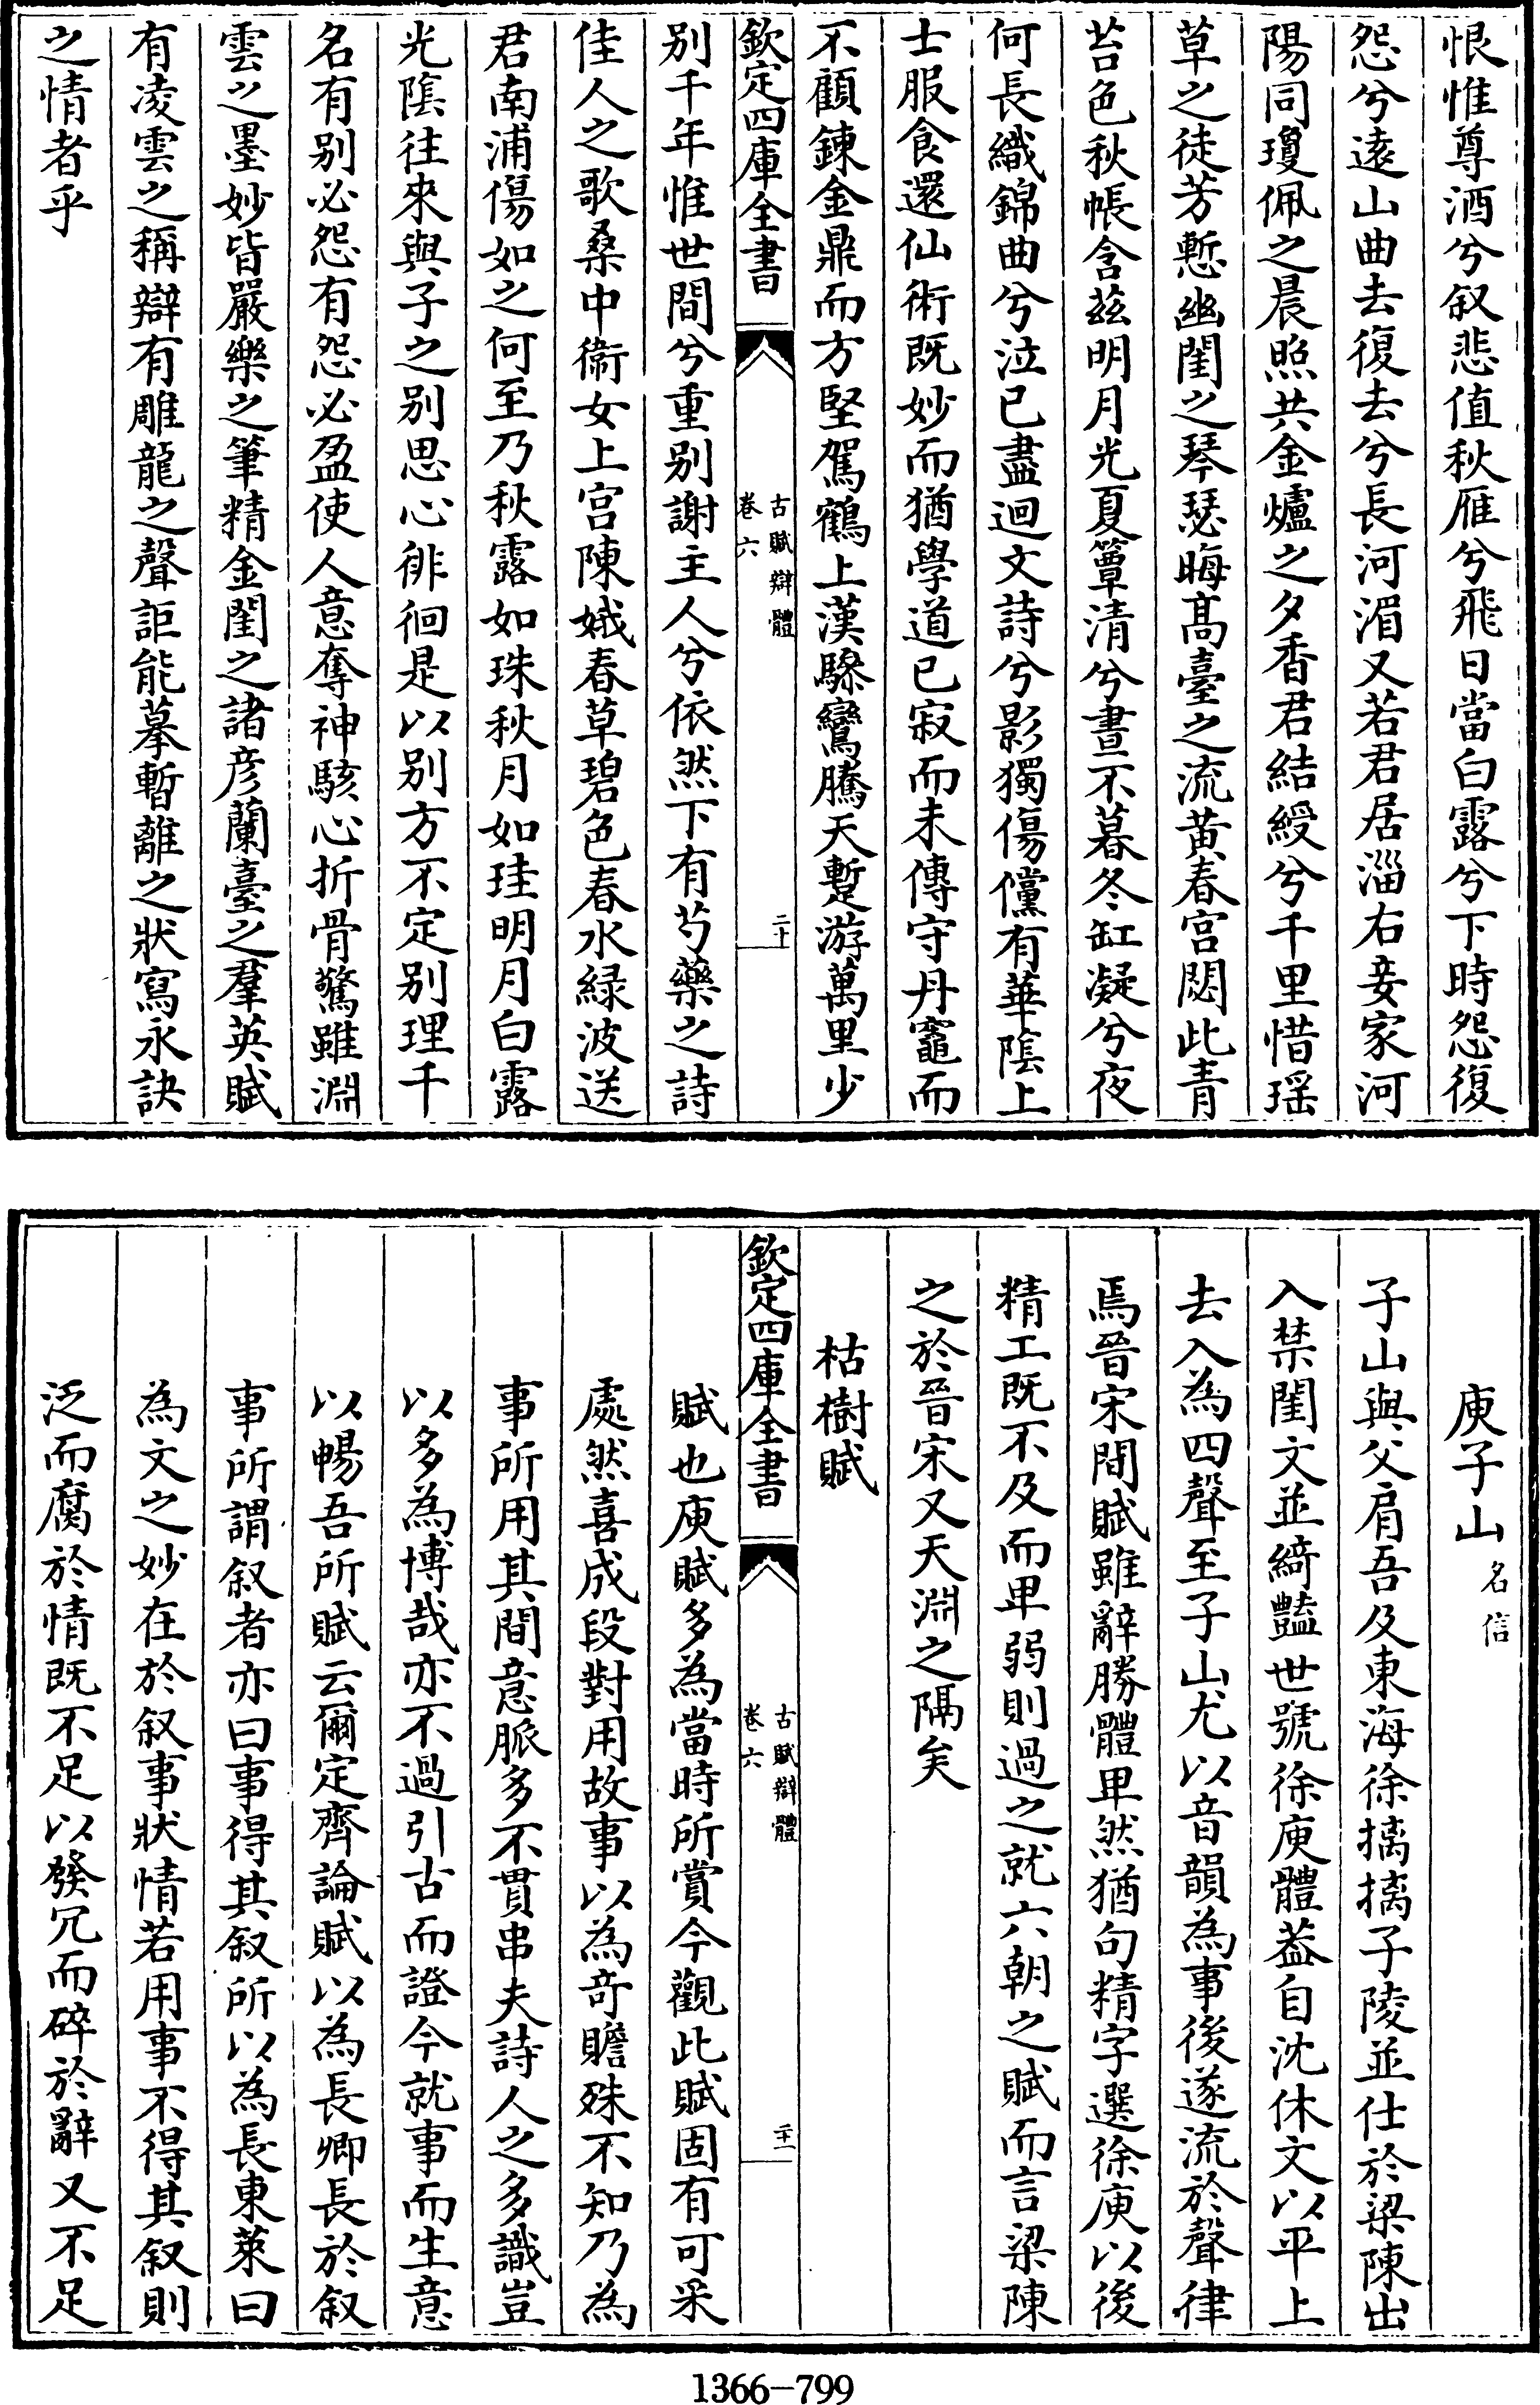 恨惟尊酒兮叙悲值秋雁兮飛日當白露兮下時怨復
怨兮遠山曲去復去兮長河湄又若君居淄右妾家河
陽同瓊佩之晨照共金爐之夕香君結綬兮千里惜瑶
草之徒芳慙幽閨之琴瑟晦髙臺之流黄春宫閟此青
苔色秋帳含茲明月光夏簟清兮晝不暮冬缸凝兮夜
何長織錦曲兮泣已盡迴文詩兮影獨傷儻有華隂上
士服食還仙術既妙而猶學道已寂而未傳守丹竈而
不顧鍊金鼎而方堅駕鶴上漢驂鸞騰天蹔游萬里少
欽定四庫全書
古賦辯體
卷六
二十
别千年惟世間兮重别謝主人兮依然下有芍藥之詩
佳人之歌桑中衞女上宫陳娥春草碧色春水緑波送
君南浦傷如之何至乃秋露如珠秋月如珪明月白露
光隂往來與子之别思心徘徊是以别方不定别理千
名有别必怨有怨必盈使人意奪神駭心折骨驚雖淵
雲之墨妙皆嚴樂之筆精金閨之諸彦蘭臺之羣英賦
有凌雲之稱辯有雕龍之聲詎能摹暫離之狀寫永訣
之情者乎
庾子山名信
子山與父肩吾及東海徐摛摛子陵並仕於梁陳出
入禁闥文並綺豔世號徐庾體葢自沈休文以平上
去入為四聲至子山尤以音韻為事後遂流於聲律
焉晉宋間賦雖辭勝體卑然猶句精字選徐庾以後
精工既不及而卑弱則過之就六朝之賦而言梁陳
之於晉宋又天淵之隔矣
枯樹賦
賦也庾賦多為當時所賞今觀此賦固有可采
欽定四庫全書
古賦辯體
卷六
二十一
處然喜成段對用故事以為竒贍殊不知乃為
事所用其間意脈多不貫串夫詩人之多識豈
以多為博哉亦不過引古而證今就事而生意
以暢吾所賦云爾定齊論賦以為長卿長於叙
事所謂叙者亦曰事得其叙所以為長東萊曰
為文之妙在於叙事狀情若用事不得其叙則
泛而腐於情既不足以發冗而碎於辭又不足
1366-799